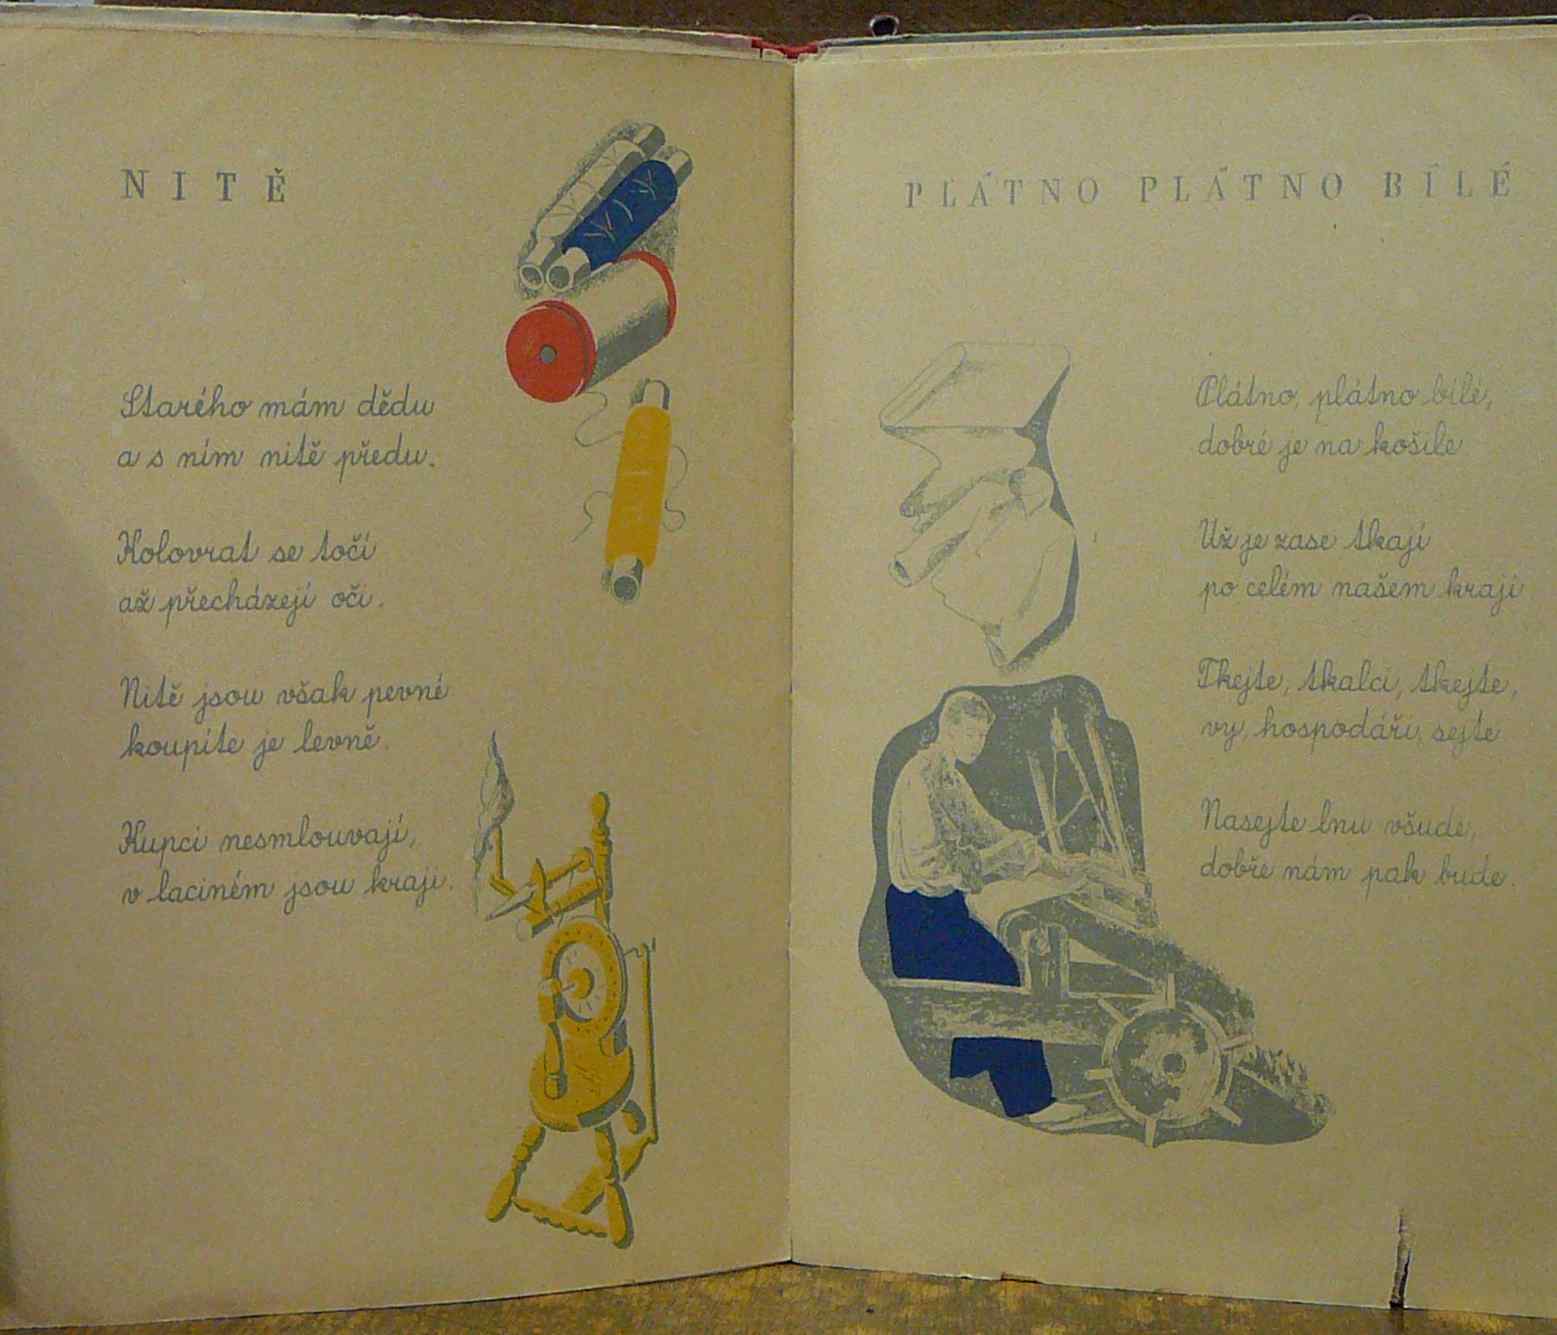 NITĚ
Starého mám dědu
a s ním nitě předu.
Kolovrat se točí
až přecházejí oči.
Nitě jsou však pevné
koupíte je levně.
Kupci nesmlouvají,
v laciném jsou kraji.
PLÁTNO PLÁTNO BÍLÉ
Plátno, plátno bílé,
dobré je na košile
Už je zase tkají
po celém našem kraji
Tkejte, tkalci, tkejte,
vy, hospodáři, sejte
Nasejte lnu všude,
dobře nám pak bude.